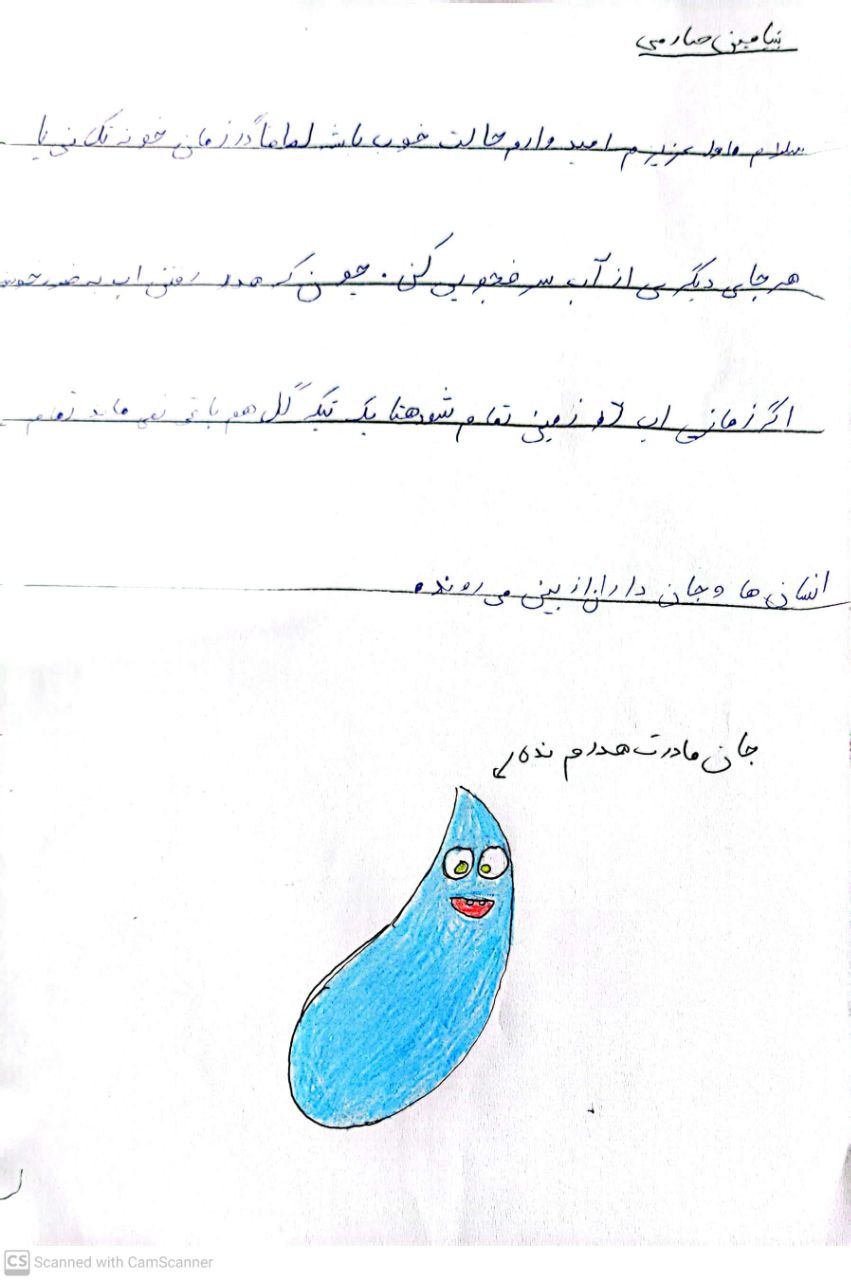 بنیامین صارمی
سلام مادر عزیزم امیدوارم حالت خوب باشه لطفاً در زمان خونه تکونی یا
هر جای دیگری از آب سرفجویی کن. چون که هدر رفتن اب به ضرر خود
اگر زمانی اب زمین تمام شود هتا یک تیکه گل هم باقی نمی ماند تمام
انسان ها و جان داران از بین می روند.
جان مادرت هدرم نده
CS Scanned with CamScanner